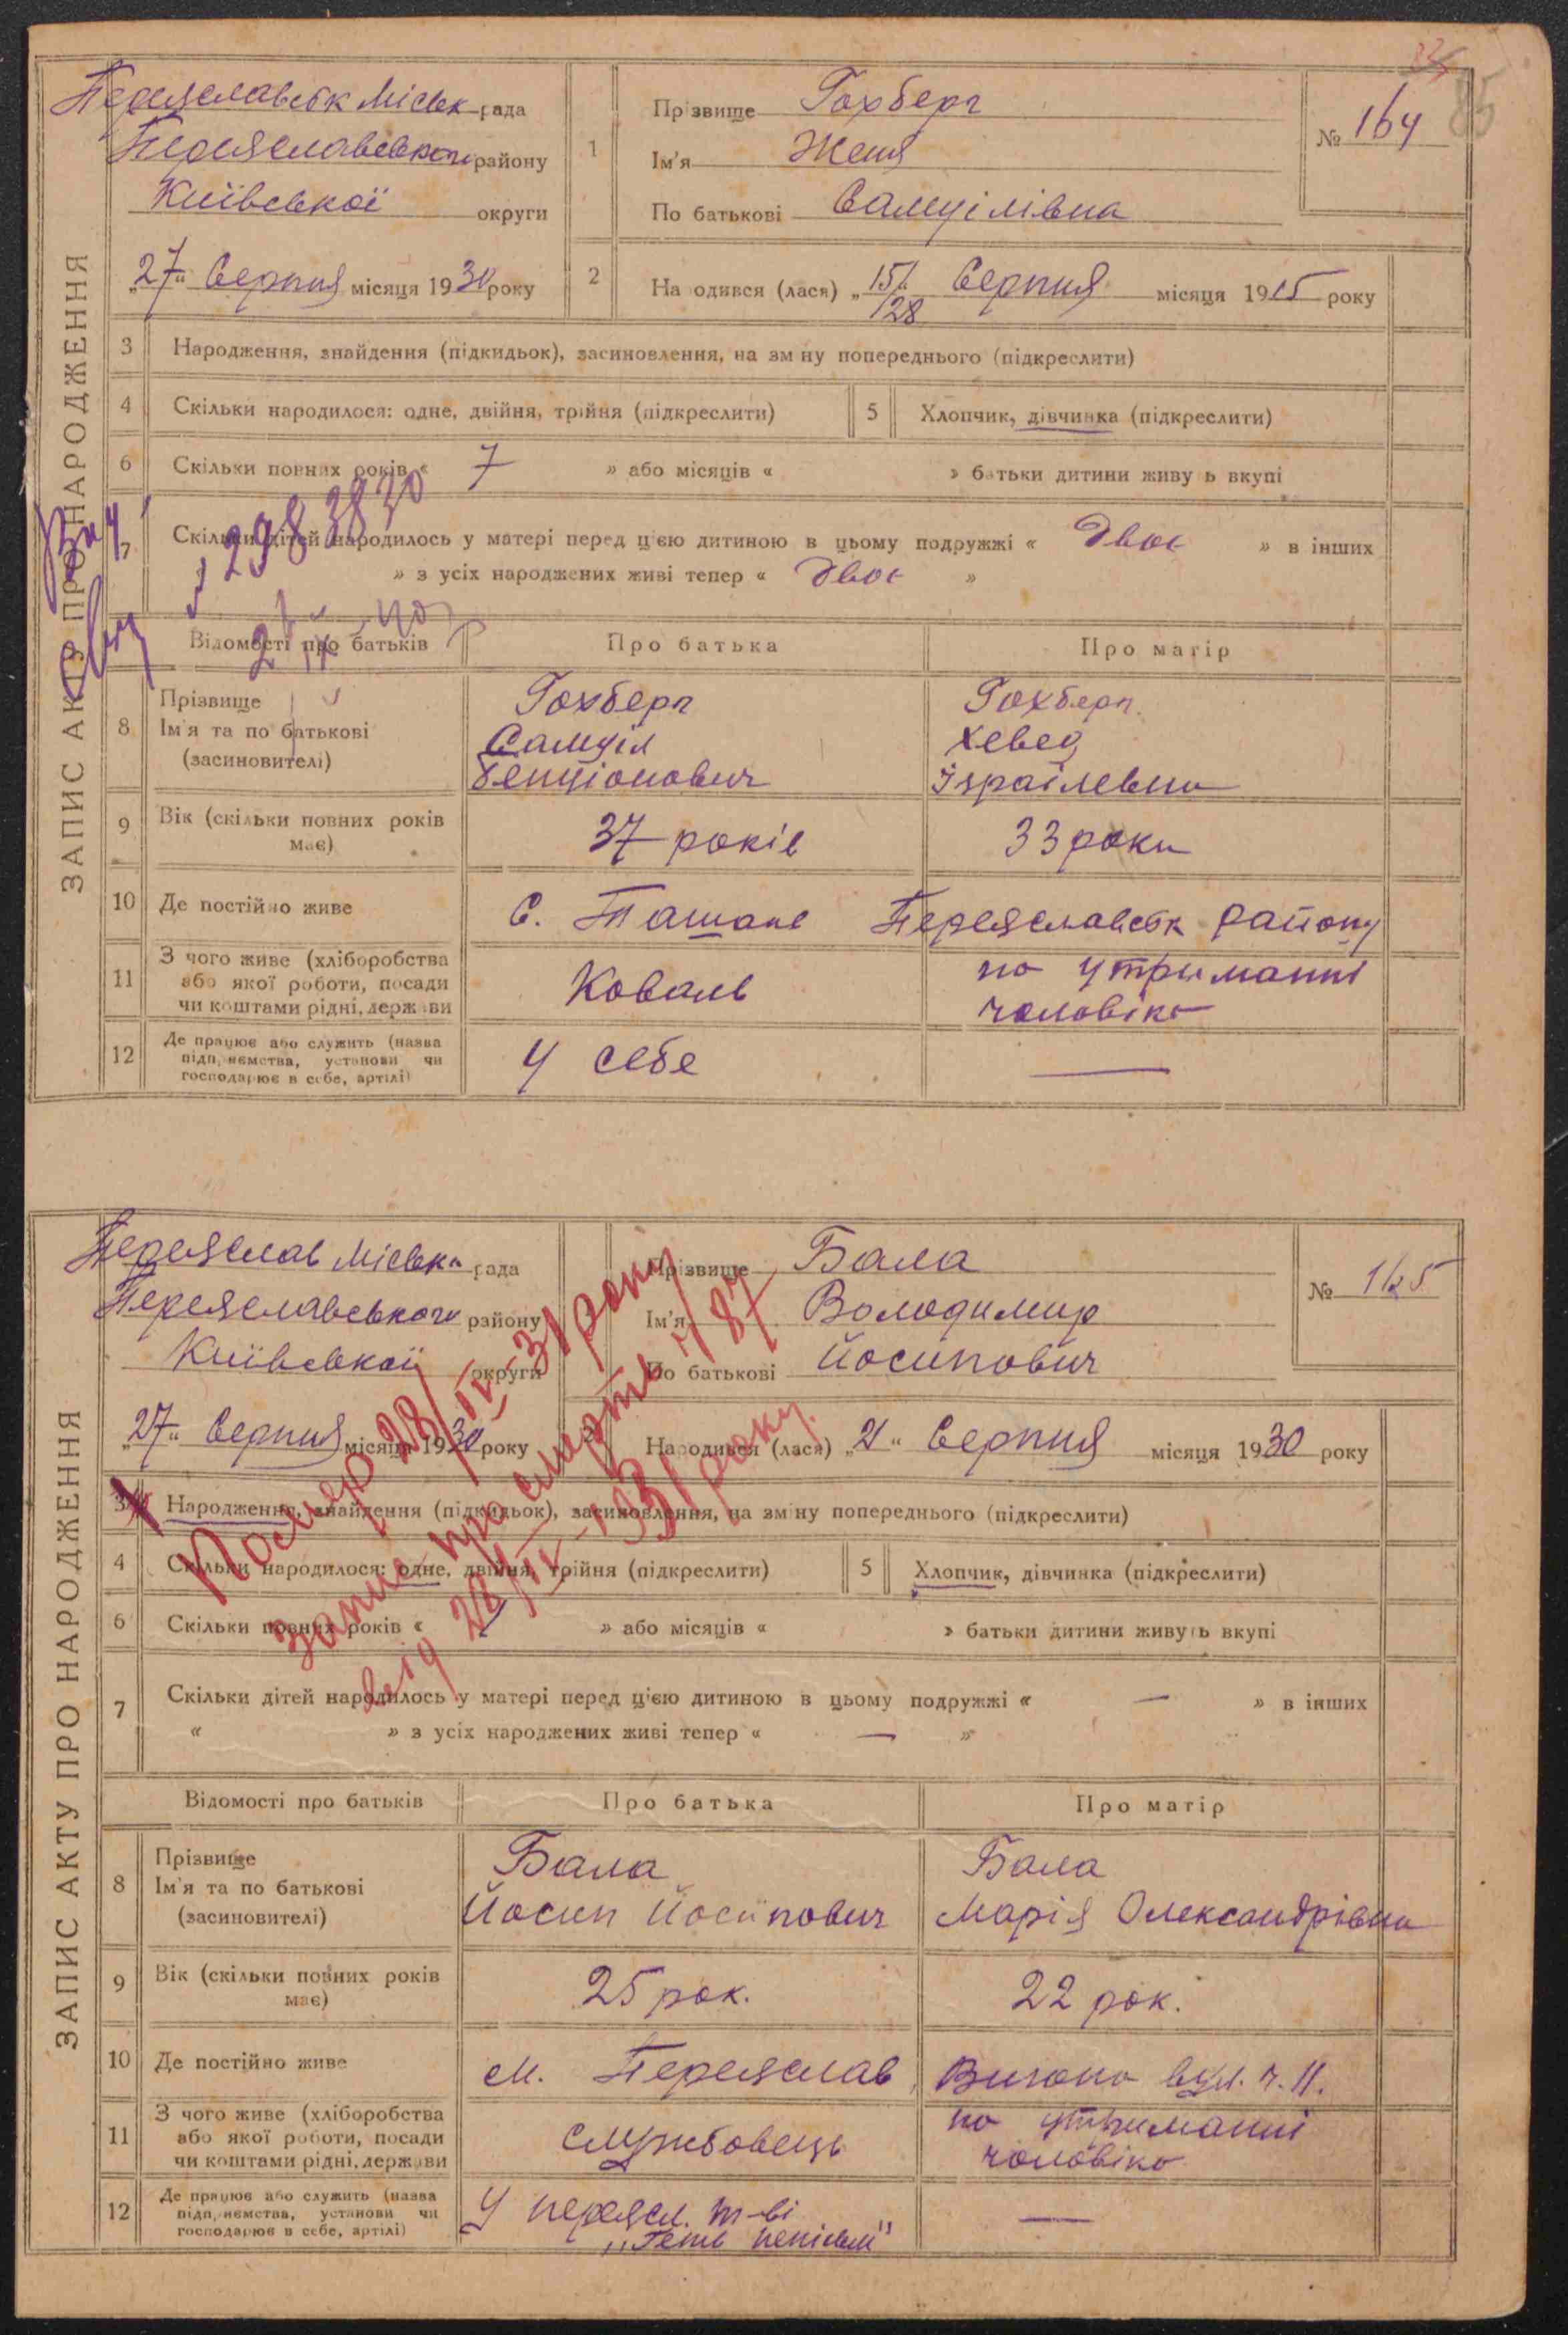 85
ЗАПИС АКТУ ПРО НАРОДЖЕННЯ
Переяславськ Міськ рада
Переяславського району
Київської округи
„27“ Серпня місяця 1930 року
1
Прізвище Гохберг
Ім'я Женя
По батькові Самуілівна
№ 164
2
На одився (лася) „15/28 Серпня місяця 1915 року
3 Народження, знайдення (підкидьок), засиновлення, на зм ну попереднього (підкреслити)
4 Скільки народилося: одне, двійня, трійня (підкреслити)
5 Хлопчик, дівчинка (підкреслити)
6 Скільки повних років « 7 » або місяців « » батьки дитини живу ь вкупі
7 Скільки дітей народилось у матері перед цією дитиною в цьому подружжі « двоє » в інших
» з усіх народжених живі тепер « двоє »
Відомості про батьків Про батька Про матір
8 Прізвище
Ім'я та по батькові
(засиновителі)
Гохберг
Самуіл
Бенціонович
Гохберг
Хевед
Ізраілевна
9 Вік (скільки повних років має) 37 років 33 роки
10 Де постійно живе С. Ташань Переяславськ району
11 З чого живе (хліборобства
або якої роботи, посади
чи коштами рідні, держави
Коваль
на утриманні
чоловіка
12 Де працює або служить (назва
підприємства, установи чи
господарює в себе, артілі)
У себе —
ЗАПИС АКТУ ПРО НАРОДЖЕННЯ
Переяслав Міська рада
Переяславського району
Київської округи
„27“ Серпня місяця 1930 року
Прізвище Бала
Ім'я Володимир
По батькові Йосипович
№ 165
2
Народився (лася) „21“ Серпня місяця 1930 року
Помер 28/IV-31 року
Запис про смерть ч 87
від 28/IV-1931 року.
3 Народження, знайдення (підкидьок), засиновлення, на зміну попереднього (підкреслити)
4 Скільки народилося: одне, двійня, трійня (підкреслити)
5 Хлопчик, дівчинка (підкреслити)
6 Скільки повних років « 1 » або місяців « » батьки дитини живуть вкупі
7 Скільки дітей народилось у матері перед цією дитиною в цьому подружжі « — » в інших
« » з усіх народжених живі тепер « — »
Відомості про батьків Про батька Про матір
8 Прізвище
Ім'я та по батькові
(засиновителі)
Бала
Йосип Йосипович
Бала
Марія Олександрівна
9 Вік (скільки повних років має) 25 рок. 22 рок.
10 Де постійно живе м. Переяслав, вул. ч. 11.
11 З чого живе (хліборобства
або якої роботи, посади
чи коштами рідні, держави
службовець
на утриманні
чоловіка
12 Де працює або служить (назва
підприємства, установи чи
господарює в себе, артілі)
У переясл. т-ві
„Геть неписьм"
—